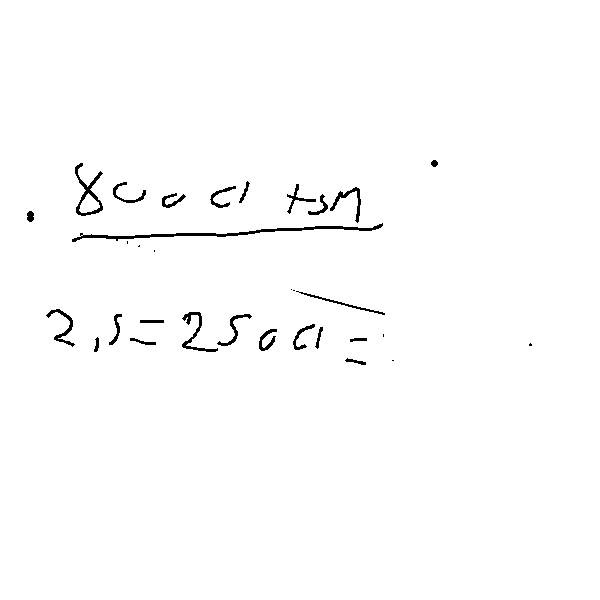 800 cl +sM
2,5=250cl=